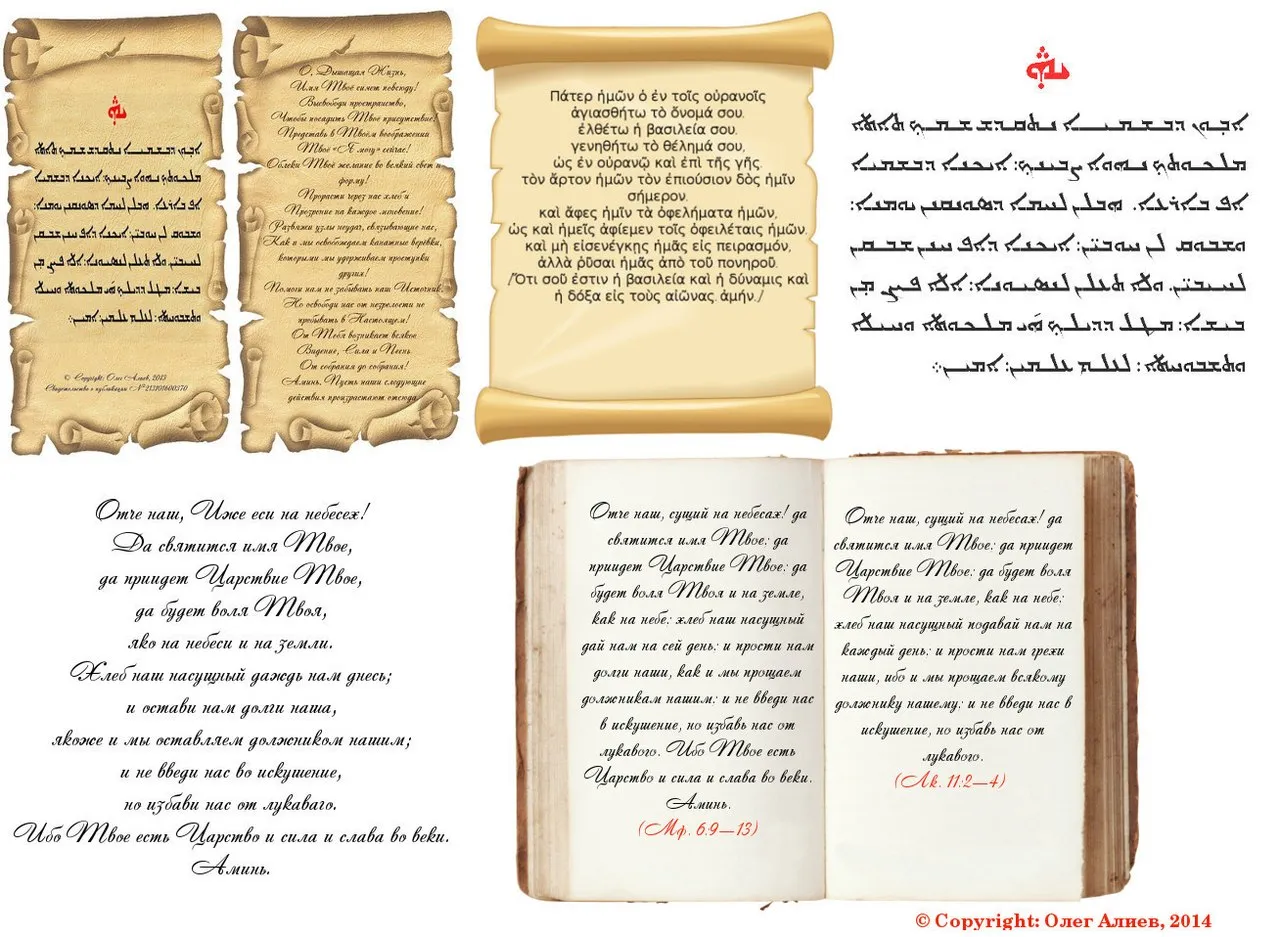 ܐܒܘܢ ܕܒܫܡܝܐ ܢܬܩܕܫ ܫܡܟ ܬܐܬܐ
ܡܠܟܘܬܟ ܢܗܘܐ ܨܒܝܢܟ: ܐܝܟܢܐ ܕܒܫܡܝܐ
ܐܦ ܒܐܪܥܐ. ܗܒܠܢ ܠܚܡܐ ܕܣܘܢܩܢܢ ܝܘܡܢܐ:
ܘܫܒܘܩ ܠܢ ܚܘܒܝ̈ܢ: ܐܝܟܢܐ ܕܐܦ ܚܢܢ ܫܒܩܢ
ܠܚܝܒܝ̈ܢ. ܘܠܐ ܬܥܠܢ ܠܢܣܝܘܢܐ: ܐܠܐ ܦܨܢ ܡܢ
ܒܝܫܐ: ܡܛܠ ܕܕܝܠܟ ܗܝ ܡܠܟܘܬܐ ܘܚܝܠܐ
ܘܬܫܒܘܚܬܐ: ܠܥܠܡ ܥܠܡܝܢ: ܐܡܝܢ܀
© Copyright: Олег Алиев, 2013
Свидетельство о публикации №213101600370
О, Дышащая Жизнь,
Имя Твоё сияет повсюду!
Высвободи пространство,
Чтобы посадить Твое присутствие!
Представь в Твоём воображении
Твоё «Я могу» сейчас!
Облеки Твоё желание во всякий свет и
форму!
Прорасти через нас хлеб и
Прозрение на каждое мгновение!
Развяжи узлы неудач, связывающие нас,
Как и мы освобождаем канатные верёвки,
которыми мы удерживаем проступки
других!
Помоги нам не забывать наш Источник.
Но освободи нас от незрелости не
пребывать в Настоящем!
От Тебя возникает всякое
Видение, Сила и Песнь
От собрания до собрания!
Аминь. Пусть наши следующие
действия произрастают отсюда.
Πάτερ ἡμῶν ὁ ἐν τοῖς οὐρανοῖς
ἁγιασθήτω τὸ ὄνομά σου.
ἐλθέτω ἡ βασιλεία σου.
γενηθήτω τὸ θέλημά σου,
ὡς ἐν οὐρανῷ καὶ ἐπὶ τῆς γῆς.
τὸν ἄρτον ἡμῶν τὸν ἐπιούσιον δὸς ἡμῖν
σήμερον.
καὶ ἄφες ἡμῖν τὰ ὀφελήματα ἡμῶν,
ὡς καὶ ἡμεῖς ἀφίεμεν τοῖς ὀφειλέταις ἡμῶν.
καὶ μὴ εἰσενέγκῃς ἡμᾶς εἰς πειρασμόν,
ἀλλὰ ῥῦσαι ἡμᾶς ἀπὸ τοῦ πονηροῦ.
/Ὅτι σοῦ ἐστιν ἡ βασιλεία καὶ ἡ δύναμις καὶ
ἡ δόξα εἰς τοὺς αἰῶνας. ἀμήν./
ܐܒܘܢ ܕܒܫܡܝܐ ܢܬܩܕܫ ܫܡܟ ܬܐܬܐ
ܡܠܟܘܬܟ ܢܗܘܐ ܨܒܝܢܟ: ܐܝܟܢܐ ܕܒܫܡܝܐ
ܐܦ ܒܐܪܥܐ. ܗܒܠܢ ܠܚܡܐ ܕܣܘܢܩܢܢ ܝܘܡܢܐ:
ܘܫܒܘܩ ܠܢ ܚܘܒܝ̈ܢ: ܐܝܟܢܐ ܕܐܦ ܚܢܢ ܫܒܩܢ
ܠܚܝܒܝ̈ܢ. ܘܠܐ ܬܥܠܢ ܠܢܣܝܘܢܐ: ܐܠܐ ܦܨܢ ܡܢ
ܒܝܫܐ: ܡܛܠ ܕܕܝܠܟ ܗܝ ܡܠܟܘܬܐ ܘܚܝܠܐ
ܘܬܫܒܘܚܬܐ: ܠܥܠܡ ܥܠܡܝܢ: ܐܡܝܢ܀
Отче наш, Иже еси на небесех!
Да святится имя Твое,
да приидет Царствие Твое,
да будет воля Твоя,
яко на небеси и на земли.
Хлеб наш насущный даждь нам днесь;
и остави нам долги наша,
якоже и мы оставляем должником нашим;
и не введи нас во искушение,
но избави нас от лукаваго.
Ибо Твое есть Царство и сила и слава во веки.
Аминь.
Отче наш, сущий на небесах! да
святится имя Твое; да
приидет Царствие Твое; да
будет воля Твоя и на земле,
как на небе; хлеб наш насущный
дай нам на сей день; и прости нам
долги наши, как и мы прощаем
должникам нашим; и не введи нас
в искушение, но избавь нас от
лукавого. Ибо Твое есть
Царство и сила и слава во веки.
Аминь.
(Мф. 6:9—13)
Отче наш, сущий на небесах! да
святится имя Твое; да приидет
Царствие Твое; да будет воля
Твоя и на земле, как на небе;
хлеб наш насущный подавай нам на
каждый день; и прости нам грехи
наши, ибо и мы прощаем всякому
должнику нашему; и не введи нас в
искушение, но избавь нас от
лукавого.
(Лк. 11:2—4)
© Copyright: Олег Алиев, 2014